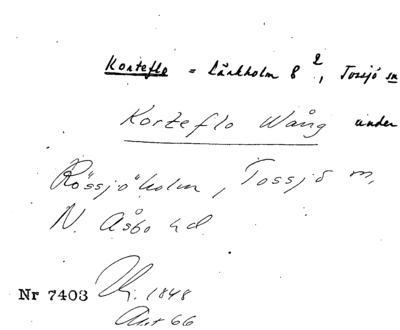 Korteflo = Lärkholm 8 2, Tossjö sn
Korteflo Wång under
Rössjöholm, Tossjö sn,
N. Åsbo hd
Nr 7403
1848
Akt 66